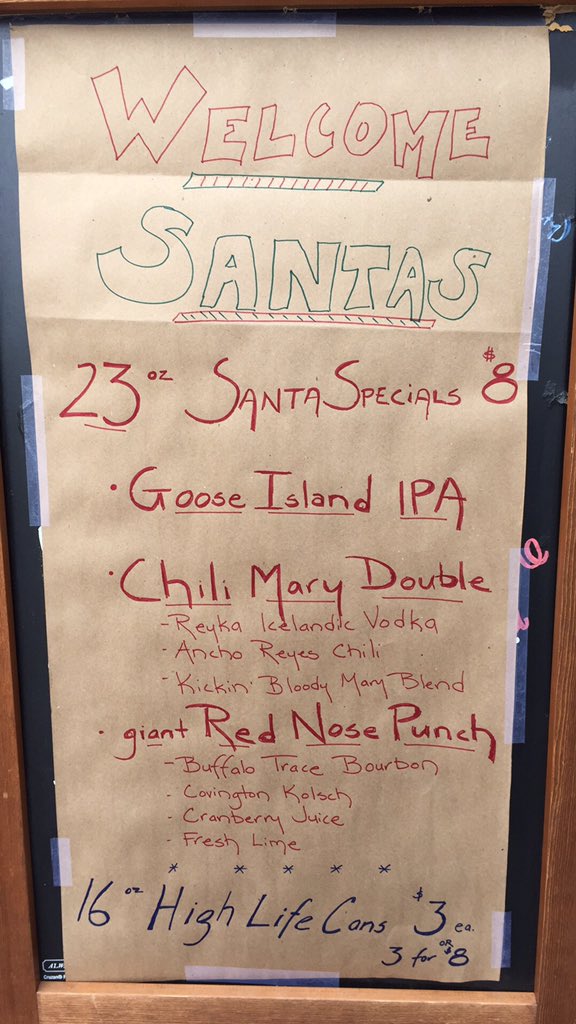 WELCOME
SANTAS
23 oz SANTA SPECIALS $8
· Goose Island IPA
· Chili Mary Double
- Reyka Icelandic Vodka
- Ancho Reyes Chili
- Kickin' Bloody Mary Blend
· giant Red Nose Punch
- Buffalo Trace Bourbon
- Covington Kolsch
- Cranberry Juice
- Fresh Lime
* * * * *
16 oz High Life Cans $3 ea.
OR
3 for $8